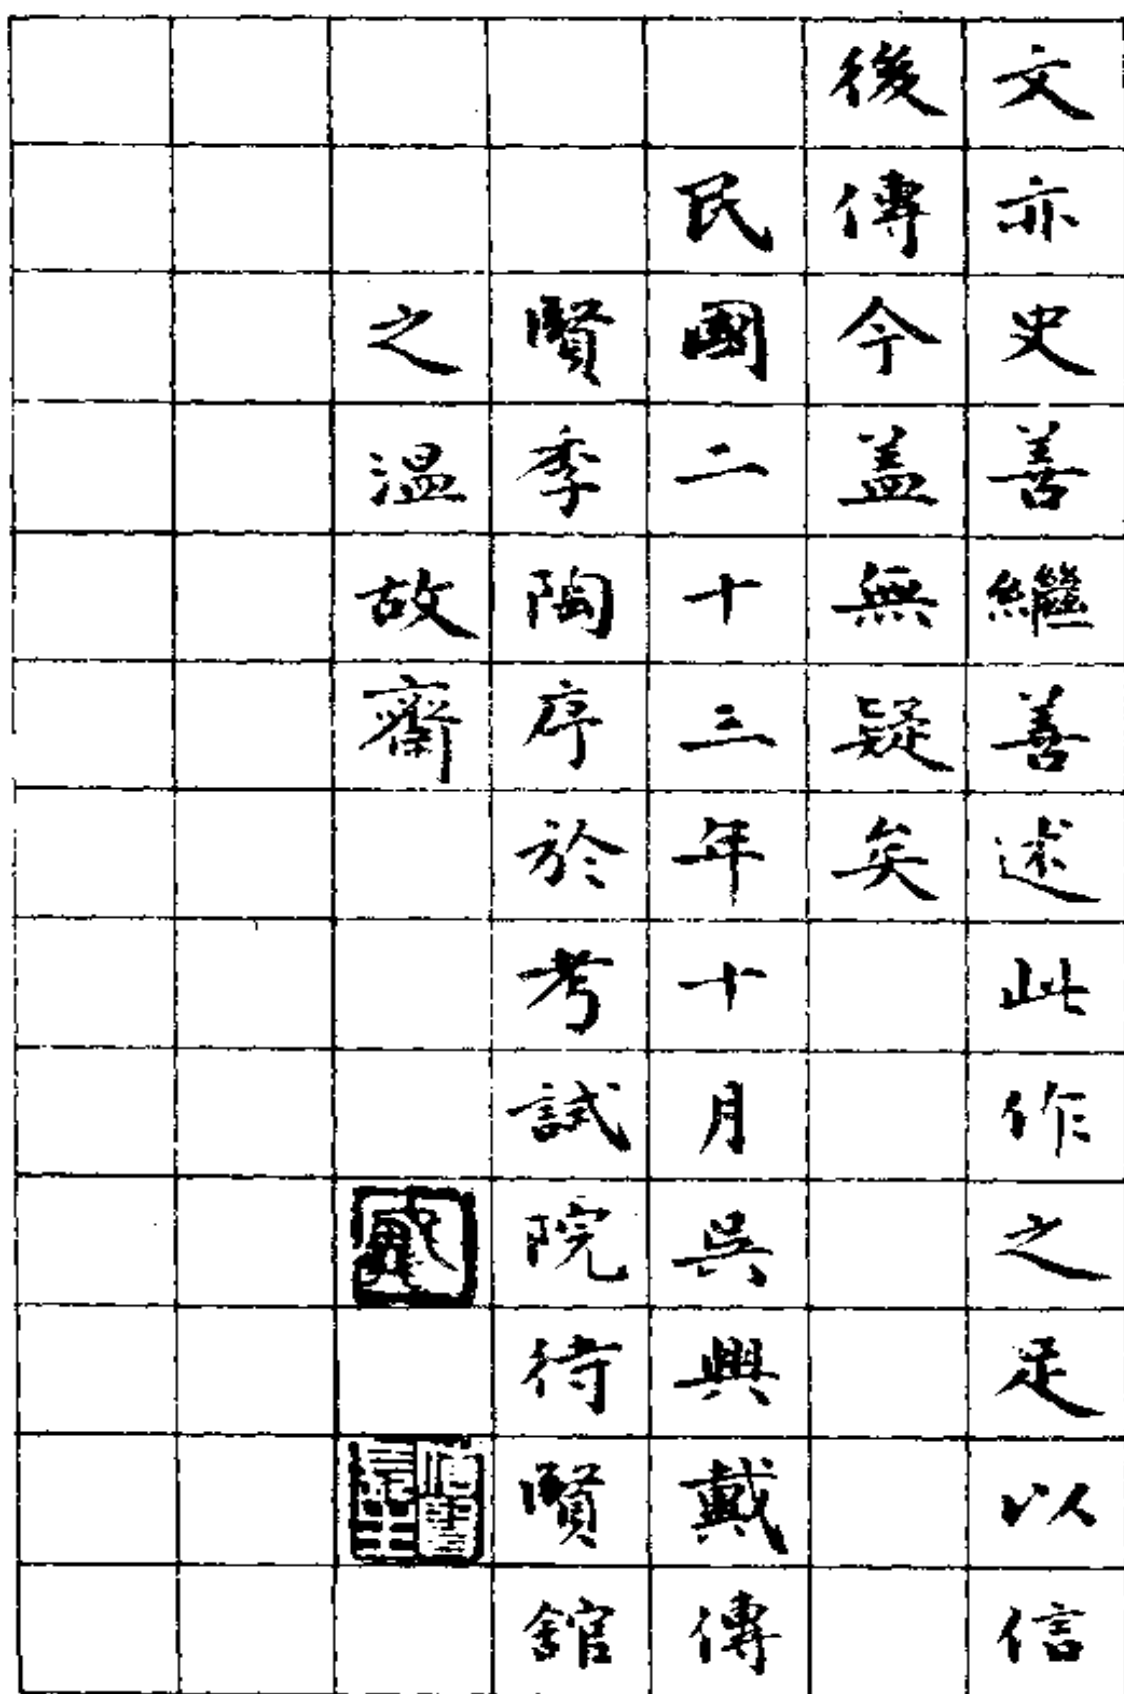 文亦史善繼善述此作之足以信
後傳今蓋無疑矣
民國二十三年十月吳興戴傳
賢季陶序於考試院待賢館
之溫故齋